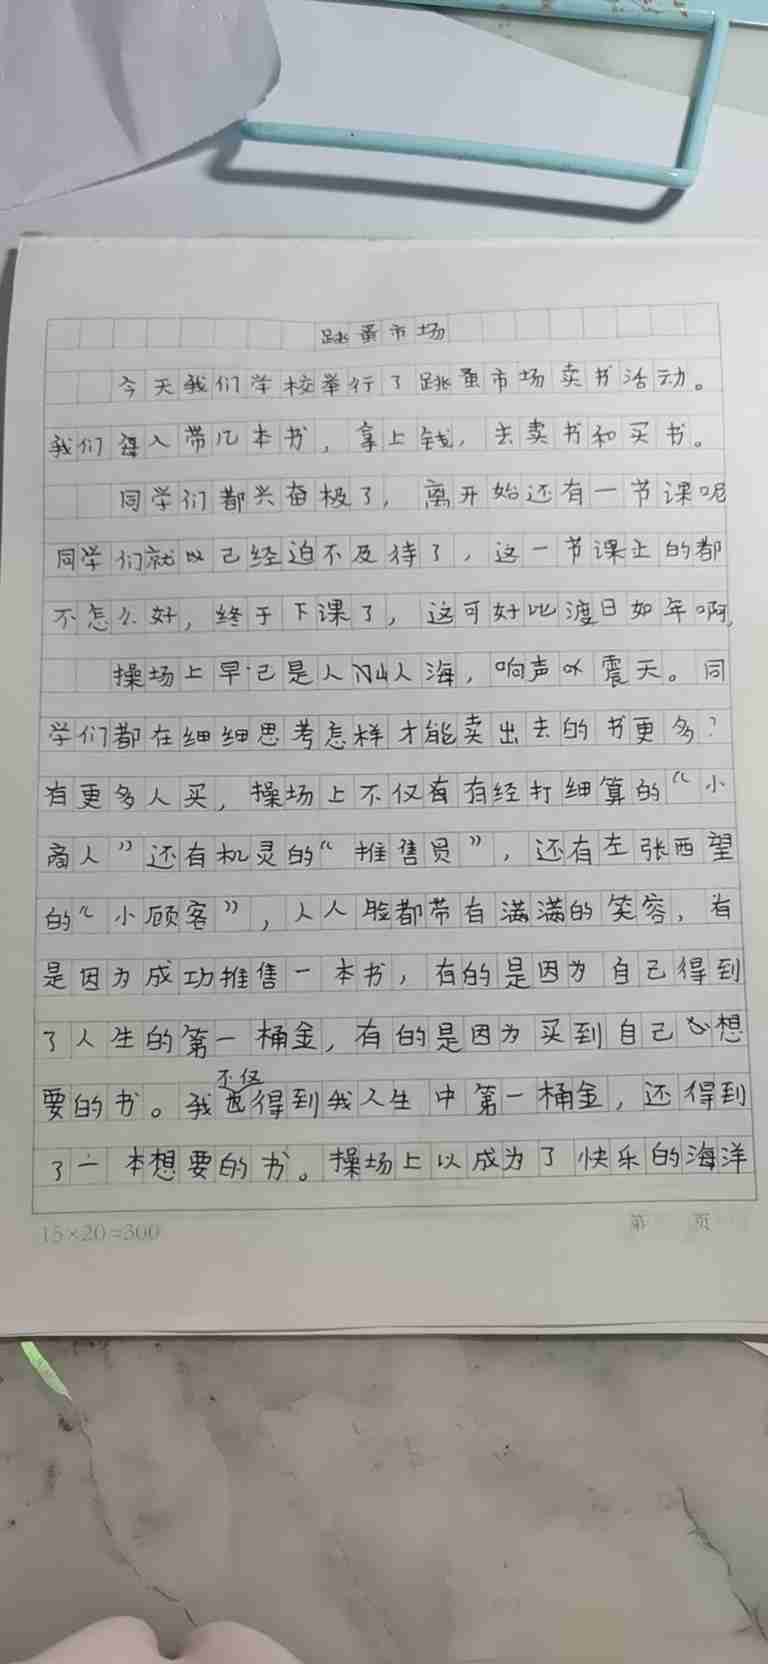 跳蚤市场
今天我们学校举行了跳蚤市场卖书活动。
我们每人带几本书，拿上钱，去卖书和买书。
同学们都兴奋极了，离开始还有一节课呢
同学们就以己经迫不及待了，这一节课上的都
不怎么好，终于下课了，这可好比渡日如年啊，
操场上早已是人山人海，响声震天。同
学们都在细细思考怎样才能卖出去的书更多？
有更多人买，操场上不仅有有经打细算的“小
商人”还有机灵的“推售员”，还有左张西望
的“小顾客”，人人脸都带有满满的笑容，有
是因为成功推售一本书，有的是因为自己得到
了人生的第一桶金，有的是因为买到自己心想
要的书。我不仅得到我人生中第一桶金，还得到
了一本想要的书。操场上以成为了快乐的海洋
15×20=300
第 页